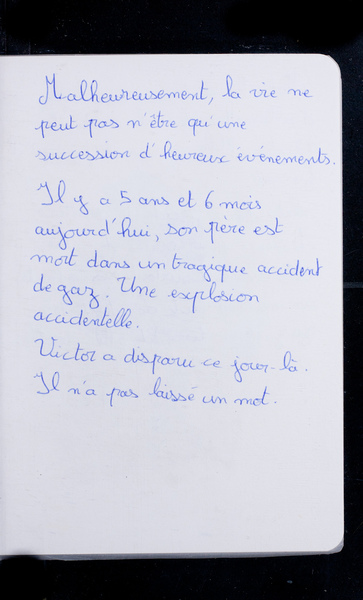 Malheureusement, la vie ne
peut pas n'être qu'une
succession d'heureux événements.
Il y a 5 ans et 6 mois
aujourd'hui, son père est
mort dans un tragique accident
de gaz. Une explosion
accidentelle.
Victor a disparu ce jour-là.
Il n'a pas laissé un mot.